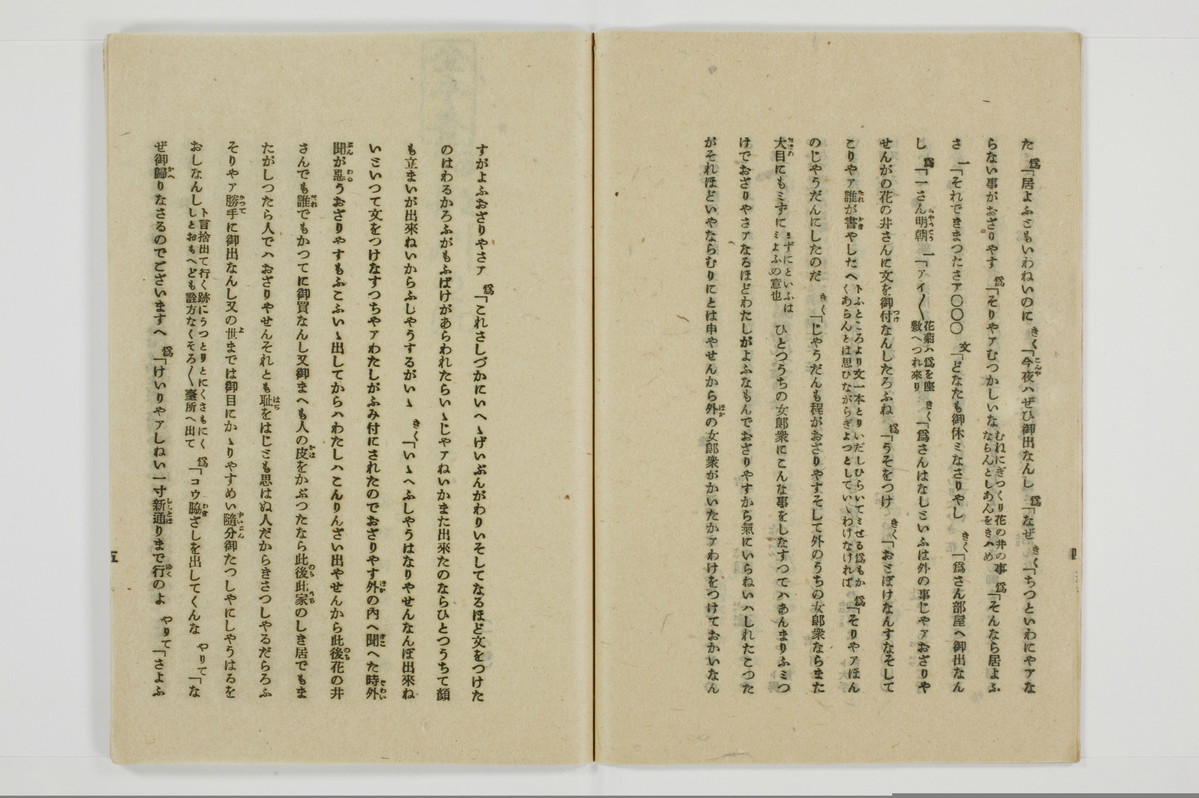 た 爲「居よふともいわねいのに きく「今夜ハぜひ御出なんし 爲「なぜ きく「ちつといわにやアな
らない事がおざりやす 爲「そりやアむつかしいな むねにぎつくり花の井の事ならんとしあんをきハめ 爲「そんなら居よふ
さ 一「それできまつたさア〇〇〇 文「どなたも御休ミなさりやし きく「爲さん部屋へ御出なん
し 爲「一さん明朝 一「アイ〱 花菊ハ爲を座敷へつれ來り きく「爲さんはなしといふは外の事じやアおざりや
せんがの花の井さんに文を御付なんしたろふね 爲「うそをつけ きく「おとぼけなんすなそして
こりやア誰が書やしたへ トふところより文一本とりいだしひらいてミせる爲もかくあらんとは思ひながらぎよつとしていゝわけなければ 爲「そりやアほん
のじやうだんにしたのだ きく「じやうだんも程がおざりやすそして外のうちの女郎衆ならまた
犬目にもミずに ミずにといふはミよふの意也 ひとつうちの女郎衆にこんな事をしなすつてハあんまりふミつ
けでおざりやさアなるほどわたしがよふなもんでおざりやすから氣にいらねいハしれたこつた
がそれほどいやならむりにとは申やせんから外の女郎衆がかいたかアわけをつけておかいなん
四
すがよふおざりやさア 爲「これさしづかにいへゝげいぶんがわりいそしてなるほど文をつけた
のはわるかろふがもふばけがあらわれたらいゝじやアねいかまた出來たのならひとつうちて顏
も立まいが出來ねいからふしやうするがいゝ きく「いゝへふしやうはなりやせんなんぼ出來ね
いといつて文をつけなすつちやアわたしがふみ付にされたのでおざりやす外の内へ聞へた時外
聞が惡うおざりやすもふこふいゝ出してからハわたしハこんりんざい出やせんから此後花の井
さんでも誰でもかつてに御買なんし又御まへも人の皮をかぶつたなら此後此家のしき居でもま
たがしつたら人でハおざりやせんそれとも耻をはじとも思はぬ人だからきさつしやるだらろふ
そりやア勝手に御出なんし又の世までは御目にかゝりやすめい隨分御たつしやにしやうはるを
おしなんし ト言捨出て行く跡にうつとりとにくさもにくしとおもへども證方なくそろ〱臺所へ出て 爲「コウ脇ざしを出してくんな やりて「な
ぜ御歸りなさるのでございますへ 爲「けいりやアしねい一寸新通りまで行のよ やりて「さよふ
五